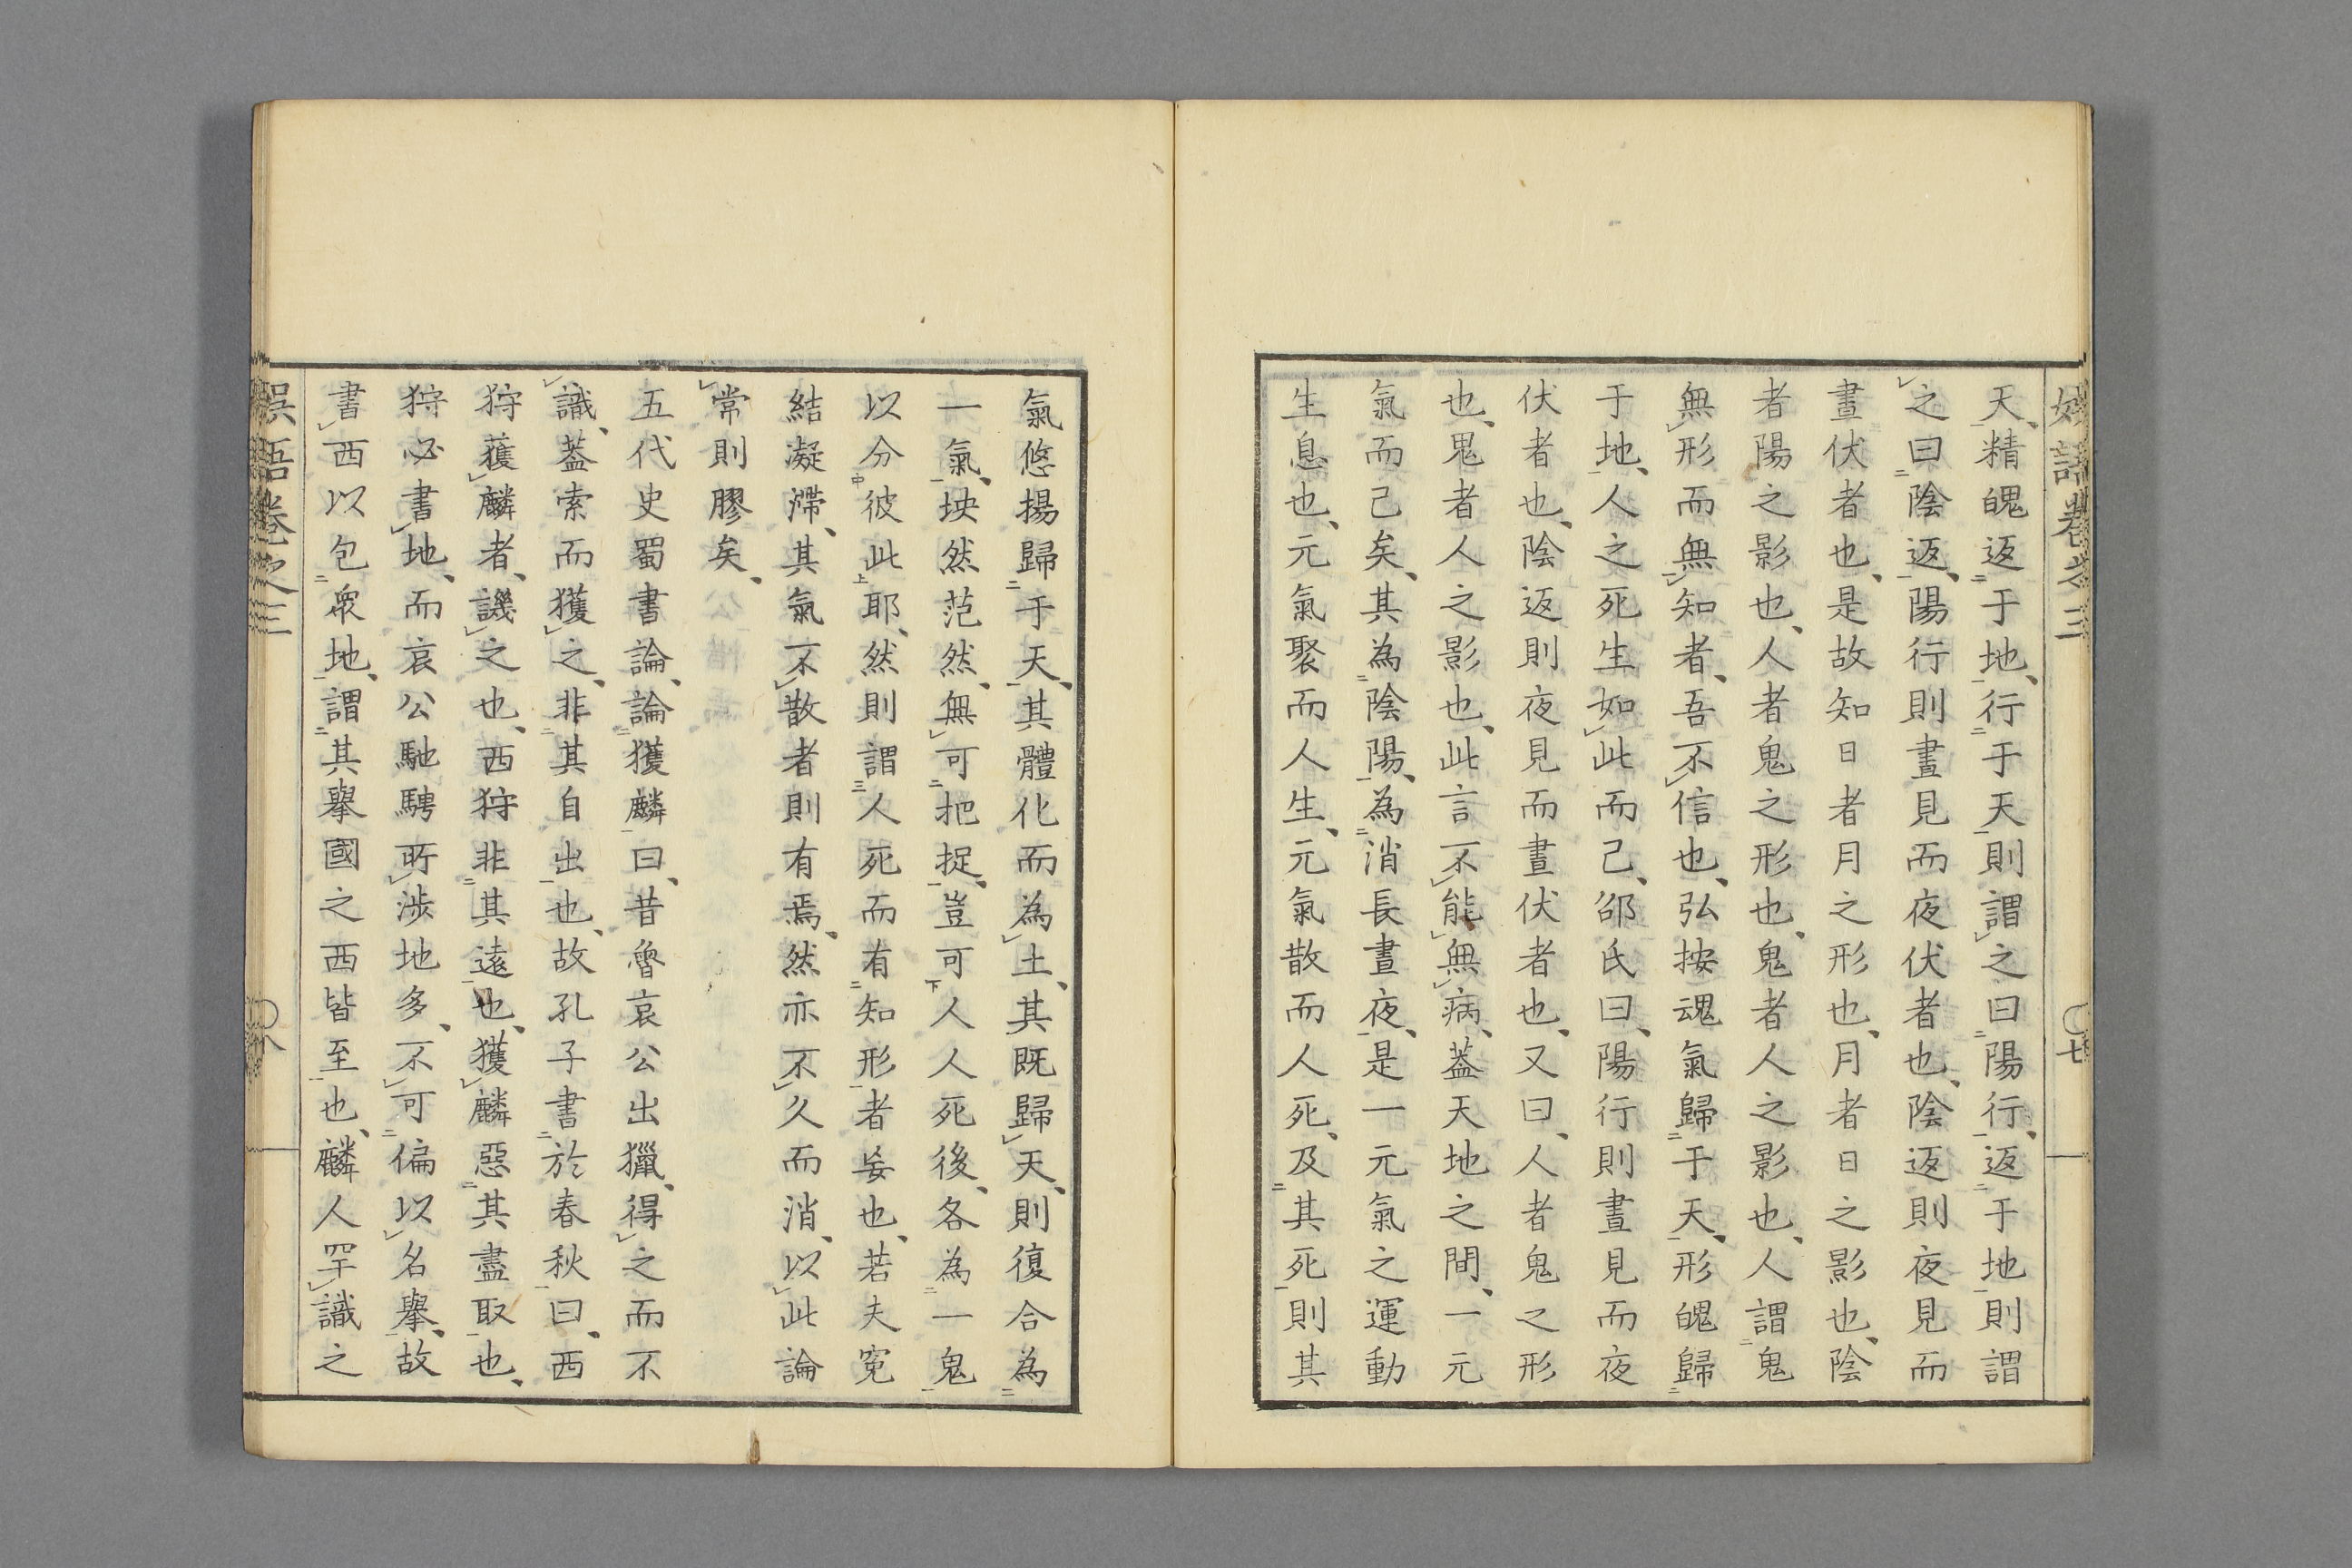 天、精魄返于地、行于天則謂之曰陽行、返于地則謂
之曰陰返、陽行則晝見而夜伏者也、陰返則夜見而
晝伏者也、是故知日者月之形也、月者日之影也、陰
者陽之影也、人者鬼之形也、鬼者人之影也、人謂鬼
無形而無知者、吾不信也、弘按魂氣歸于天、形魄歸
于地、人之死生如此而已、邵氏曰、陽行則晝見而夜
伏者也、陰返則夜見而晝伏者也、又曰、人者鬼之形
也、鬼者人之影也、此言不能無病、蓋天地之間、一元
氣而已矣、其為陰陽、為消長晝夜、是一元氣之運動
生息也、元氣聚而人生、元氣散而人死、及其死則其
氣悠揚歸于天、其體化而為土、其既歸天、則復合為
一氣、坱然范然、無可把捉、豈可人人死後、各為一鬼
以分彼此耶、然則謂人死而有知形者妄也、若夫寃
結凝滯、其氣不散者則有焉、然亦不久而消、以此論
常則膠矣、
五代史蜀書論、論獲麟曰、昔魯哀公出獵、得之而不
識、蓋索而獲之、非其自出也、故孔子書於春秋曰、西
狩獲麟者、譏之也、西狩非其遠也、獲麟惡其盡取也、
狩必書地、而哀公馳騁所涉地多、不可偏以名舉、故
書西以包眾地、謂其舉國之西皆至也、麟人罕識之
卷之三